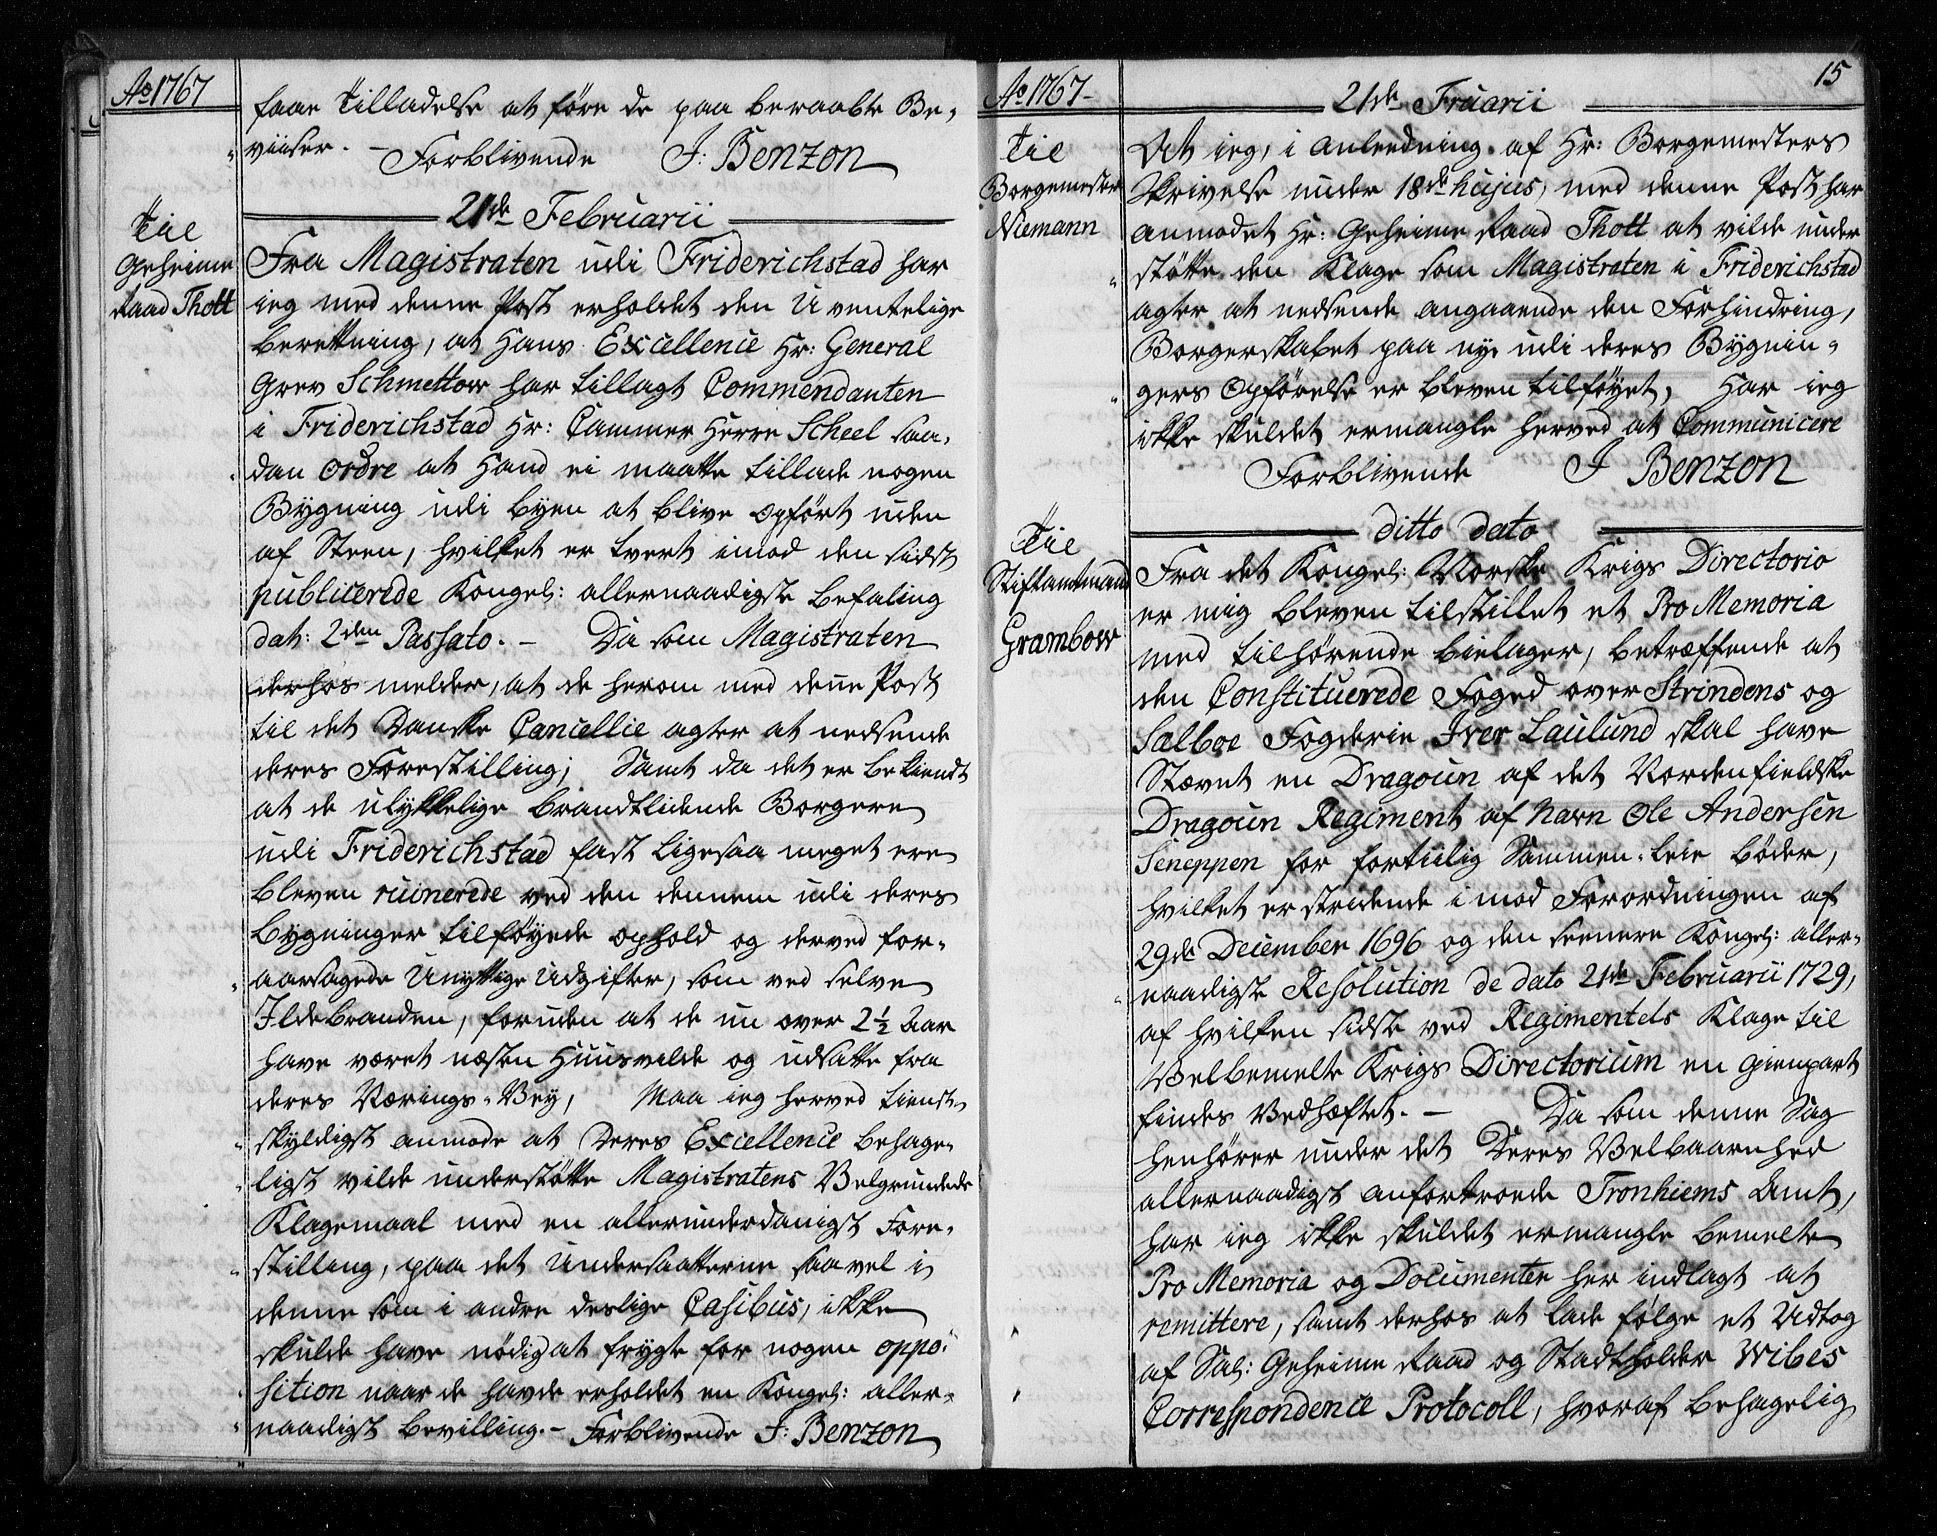 Ao 1767
faae Tilladelse at före de paa beraabte Be-
viiser. - Forblivende J: Benzon
21de Februarii
Til
Geheime
Raad Thott
Fra Magistraten udi Friderichstad har
ieg med denne Post erholdet den U ventelige
beretning, at Hans Excellence Hr: General
Grev Schmettow har tillagt Commendanten
i Friderichstad Hr: Cammer Herre Scheel saa-
dan Ordre at Hand ei maatte tillade nogen
Bygning udi byen at blive opført uden
af Steen, hvilket er tvert imod den sidst
publicerede Kongel: allernaadigste befaling
dat: 2den Passato. - Da som Magistraten
derhos melder, at de herom med dene Post
til det Danske Cancellie agter at nedsende
deres Forestilling; Samt da det er bekiendt
at de ulykkelige brandtlidende Borgere
udi Friderichstad fast ligesaa meget ere
bleven ruinerede ved den dennem udi deres
bygninger tilføyede ophold og derved for-
aarsagede Unyttige Udgifter, som ved selve
Ildebranden, foruden at de nu over 2½ Aar
have været næsten Huusvilde og udsatte fra
deres Nærings-Vey, Maa ieg herved tienst-
skyldigst anmode at Deres Excellence behage-
ligst vilde understøtte Magistratens Velgrundede
Klagemaal med en allerunderdanigst Fore-
stilling, paa det Undersaatterne saavel i
denne som i andre deslige Casibus, ikke
skulde have nödig at frygte for nogen oppo-
sition naar de havde erholdet en Kongel: aller-
naadigst bevilling. - Forblivende J: Benzon
Ao 1767-
15
21de Fruarii
Til
Borgemester
Niemann
At ieg, i anleedning af Hr: Borgemesters
Skrivelse under 18de hujus, med denne Post har
anmodet Hr: Geheime Raad Thott at vilde under
støtte den Klage som Magistraten i Friderichstad
agter at nedsende angaaende den Forhindring,
Borgerskabet paa nye udi deres Bygnin-
gers Opførelse er bleven tilføyet, Har ieg
ikke skuldet ermangle herved at Communicere
Forblivende J Benzon
ditto dato
Til
Stiftamtmand
Grambow
Fra det Kongel: Norske Krigs Directorio
er mig bleven tilstillet et Pro Memoria
med tilhørende bielager, betræffende at
den Constituerede Foged over Strindens og
Sælboe Fogderie Iver Laulund skal have
Stævnt en Dragoun af det Nordenfieldske
Dragoun Regiment af Navn Ole Andersen
Seneppen for fortiilig Sammen-leie bøder,
hvilket er stridende imod Forordningen af
29de December 1696 og den seenere Kongel: aller-
naadigste Resolution de dato 21de Februarii 1729,
af hvilken sidste ved Regimentets Klage til
Velbemelte Krigs Directorium en gienpart
findes Vedhæftet. - Da som denne Sag
henhører under det Deres Velbaarnhed
allernaadigst anfortroede Tronhiems Amt,
har ieg ikke skuldet ermangle bemelte
Pro Memoria og Documenter her indlagt at
remittere, samt derhos at lade følge et Udtog
af Sal: Geheime Raad og Stadtholder Wibes
Correspondence Protocoll, hvoraf behagelig